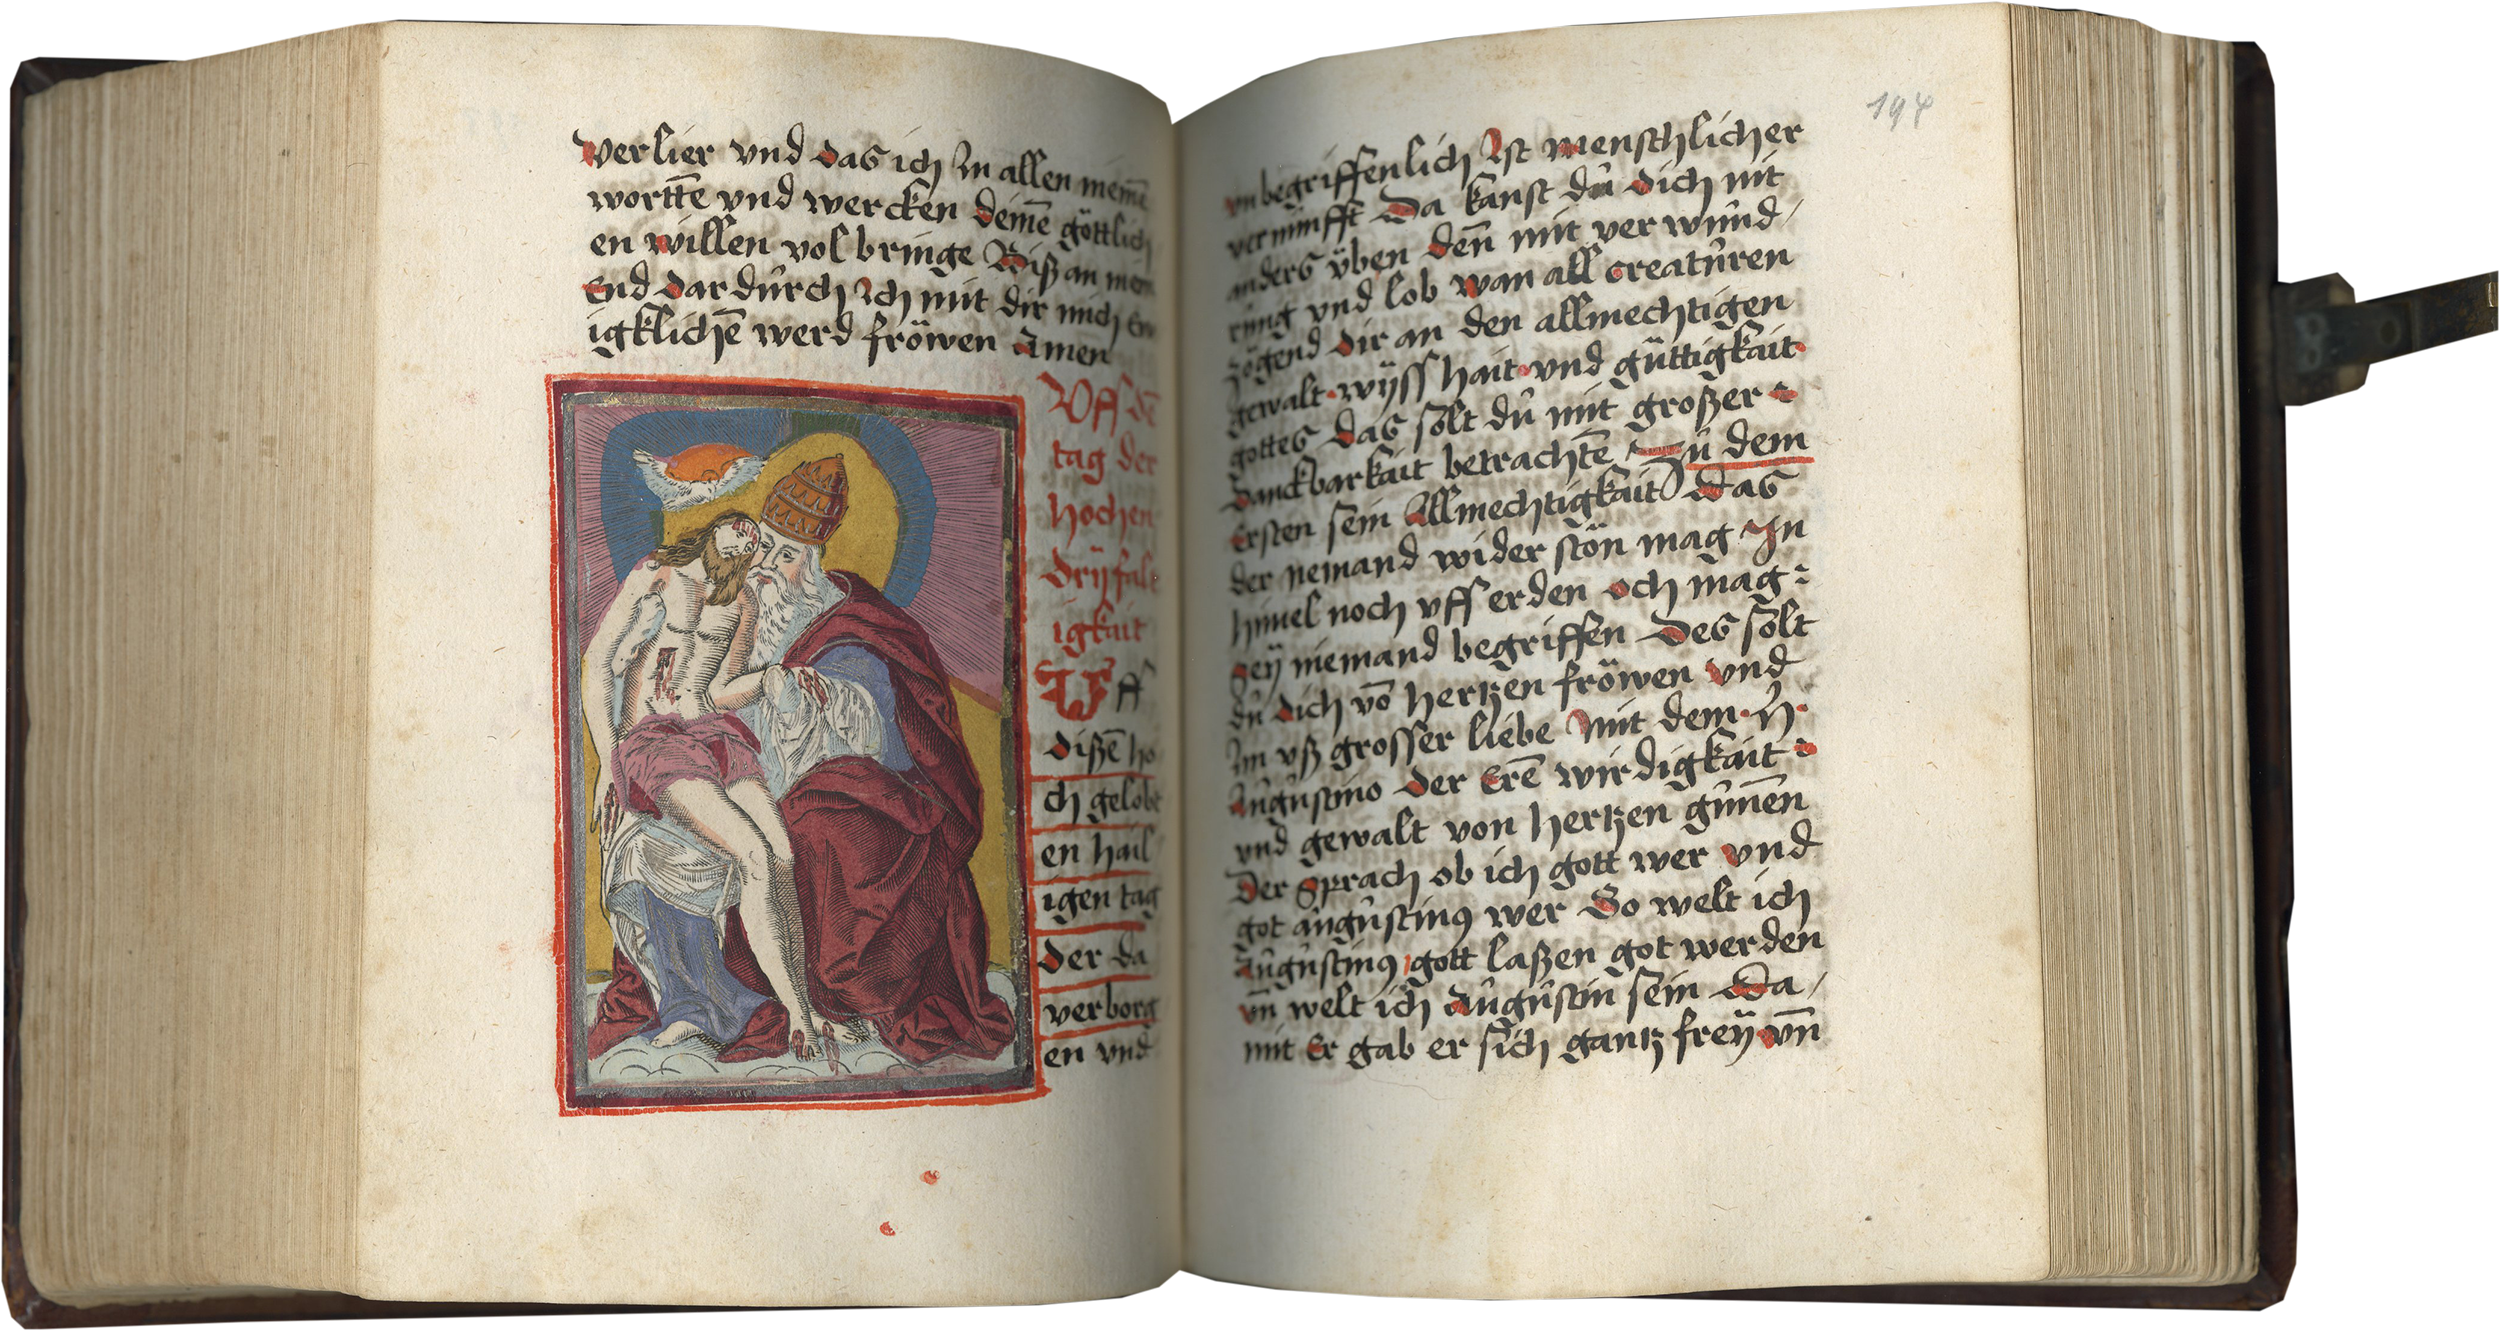 verlier vnd das ich In allen meinē
wortē vnd wercken deinē göttlich
en willen vol bringe Biß an mein
End dar dŭrch Ich mit dir mich Ew
igklichē werd fröwen Amen
Vff dē
tag der
hochen
drÿfalt
igkait
Vff
dißē ho
ch gelobt
en hail
igen tag
der da
verborg
en vnd
194
vnbegriffenlich Ist menschlicher
vernŭnfft Da kanst dŭ dich nit
anders ÿben den̄ mit ver wŭnd/
rŭng vnd lob wan all creatŭren
zögend dir an den allmechtigen
gewalt wÿsshait vnd gŭttigkait
gottes das solt dŭ mit großer
danckbarkait betrachtē Zŭ dem
Ersten sein Allmechtigkait Das
der nemand wider stön mag In
himel noch vff erden och mag
seÿ niemand begriffen Des solt
dŭ dich vō hertzen fröwen vnd
Im vß grosser liebe Mit dem h̄
Aŭgŭstino der Erē wirdigkait
vnd gewalt von hertzen gŭnēn
Der sprach ob ich gott wer vnd
got aŭgŭstinꝰ wer So welt ich
Aŭgŭstinꝰ gott laßen got werden
vn̄ welt ich Aŭgŭstin sein Da/
mit Er gab er sich gantz freÿ vn̄